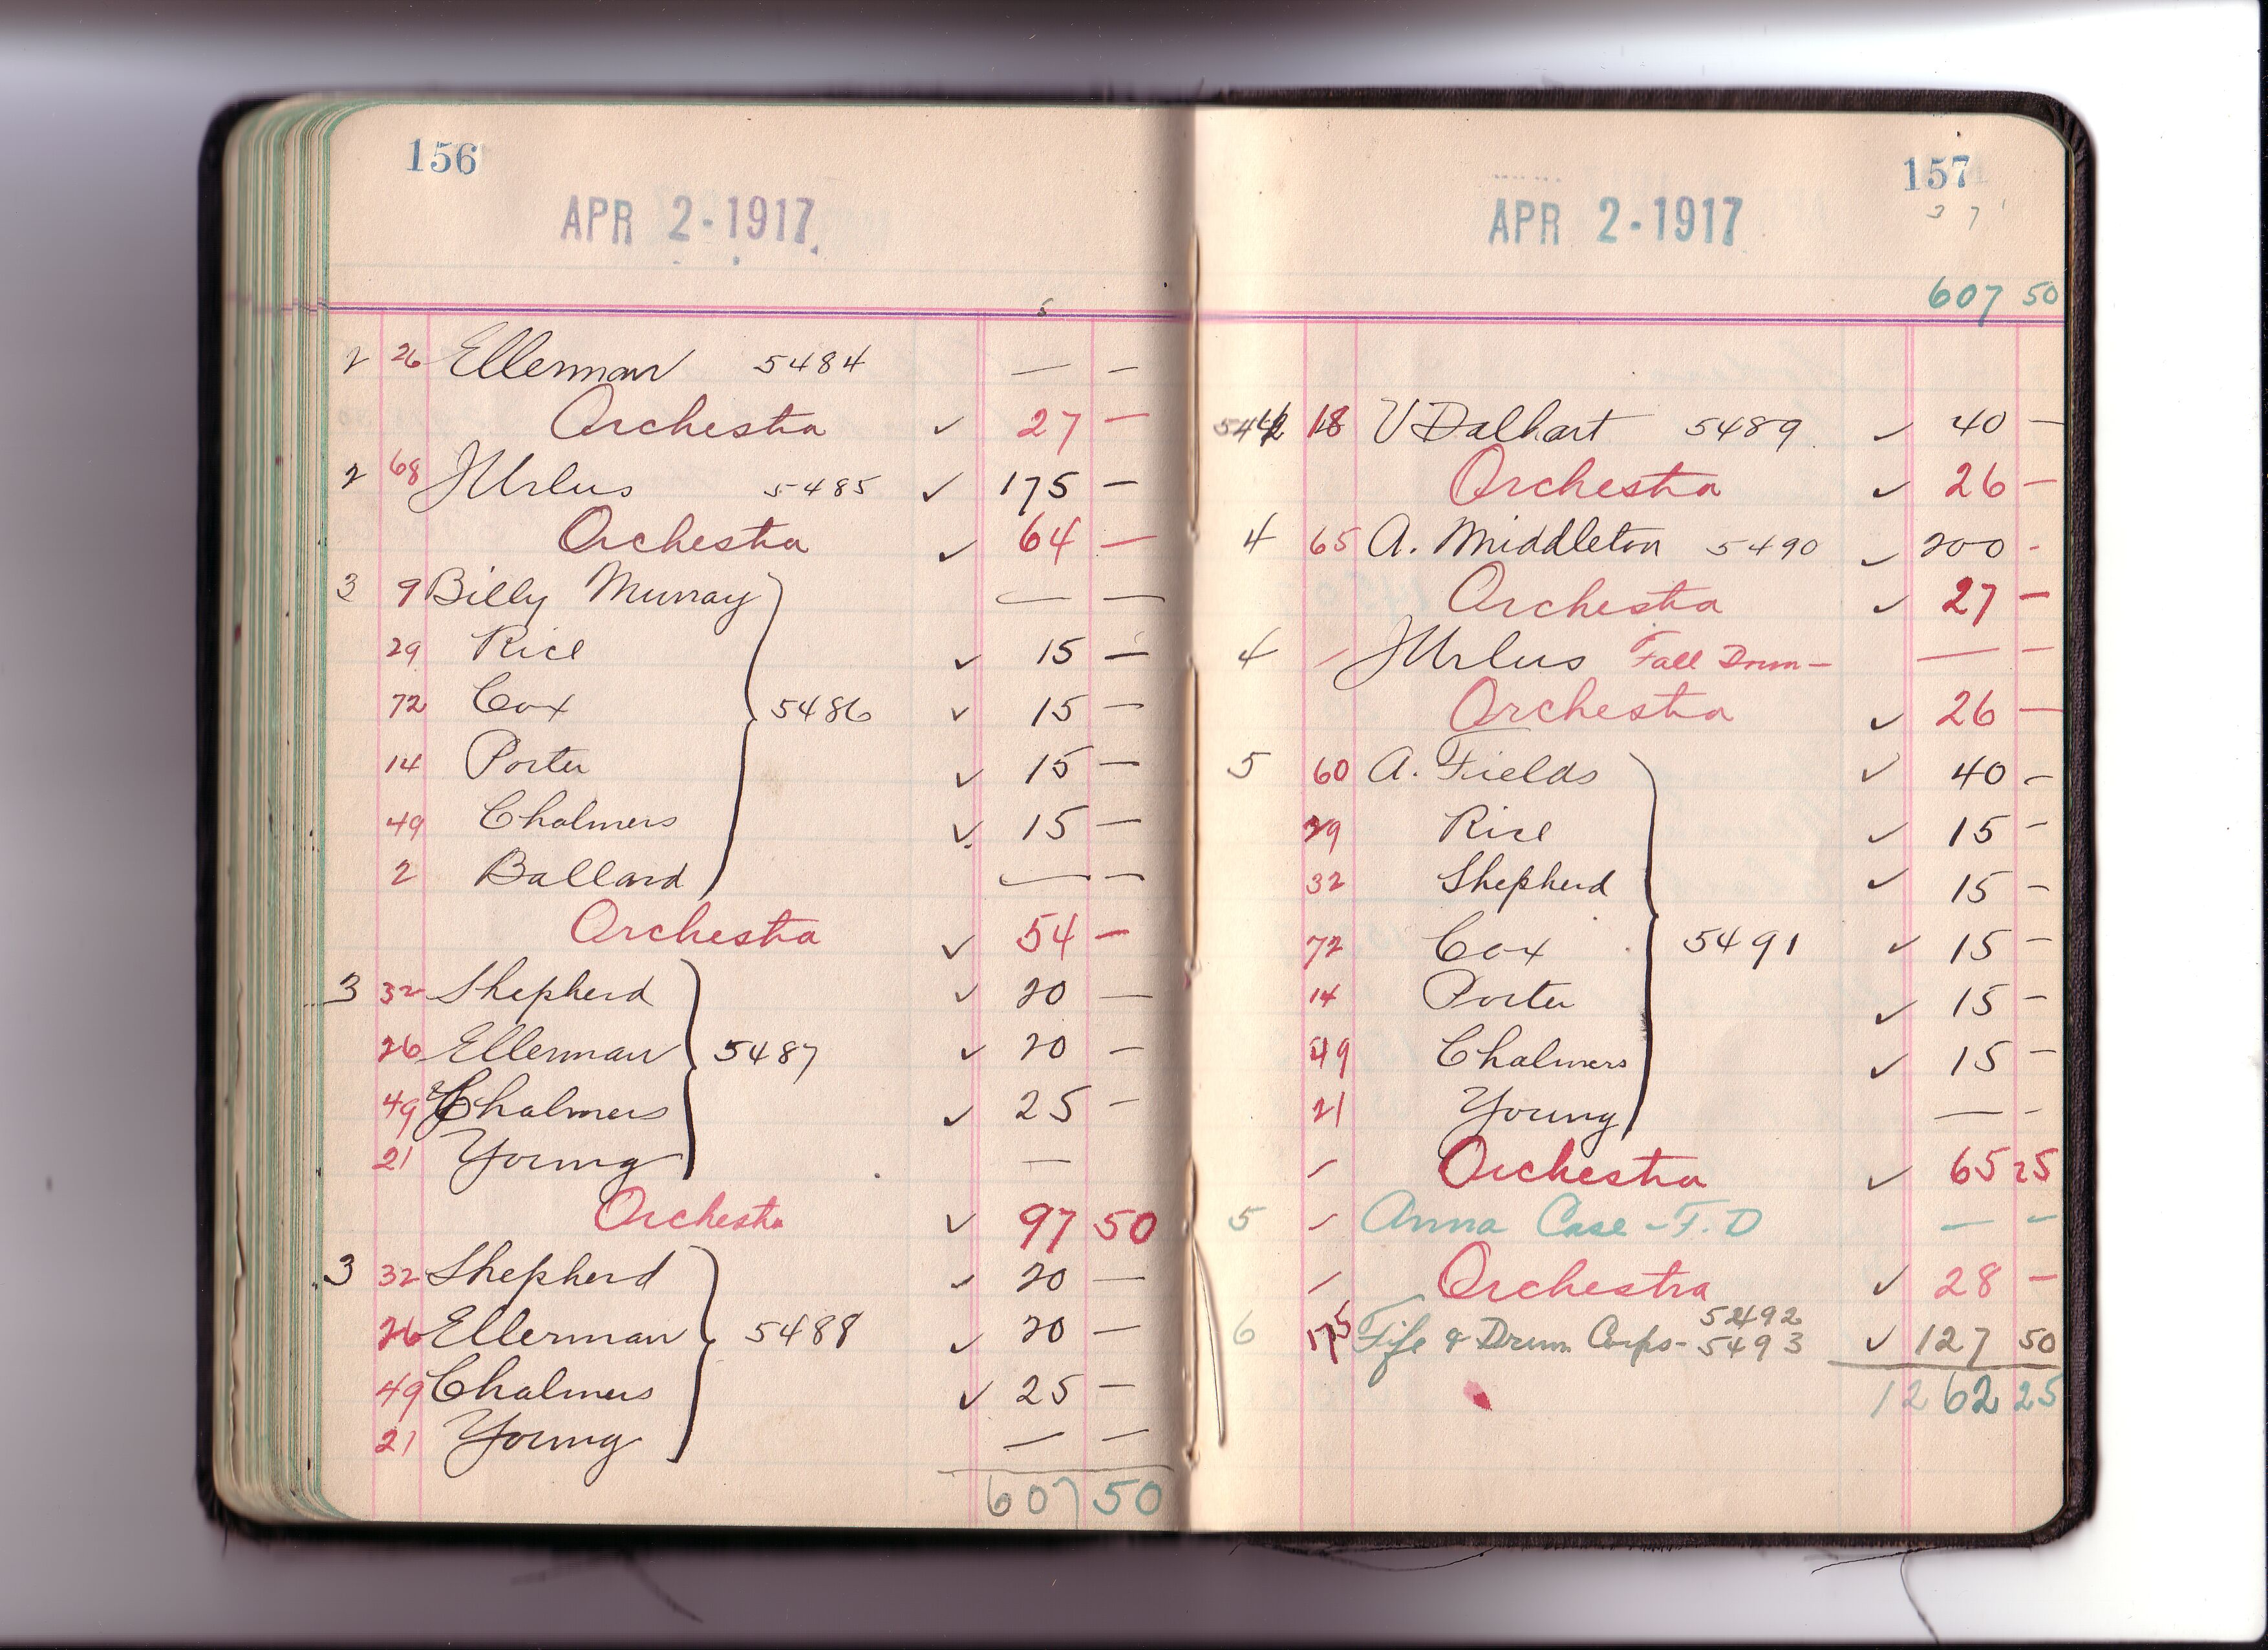 156
APR 2-1917
5
2 26 Ellerman 5484 — —
Orchestra ✓ 27 —
2 68 J Urlus 5485 ✓ 175 —
Orchestra ✓ 64 —
3 9 Billy Murray — —
29 Rice ✓ 15 —
72 Cox 5486 ✓ 15 —
14 Porter ✓ 15 —
49 Chalmers ✓ 15 —
2 Ballard — —
Orchestra ✓ 54 —
3 32 Shepherd ✓ 20 —
26 Ellerman 5487 ✓ 20 —
49 Chalmers ✓ 25 —
21 Young —
Orchestra ✓ 97 50
3 32 Shepherd ✓ 20 —
26 Ellerman 5488 ✓ 20 —
49 Chalmers ✓ 25 —
21 Young — —
607 50
157
3 7
APR 2-1917
607 50
18 V Dalhart 5489 ✓ 40 —
Orchestra ✓ 26 —
4 65 A. Middleton 5490 ✓ 200 -
Orchestra ✓ 27 —
4 J Urlus Fall Drum — — —
Orchestra ✓ 26 —
5 60 A. Fields ✓ 40 —
29 Rice ✓ 15 —
32 Shepherd ✓ 15 —
72 Cox 5491 ✓ 15 —
14 Porter ✓ 15 —
49 Chalmers ✓ 15 —
21 Young — -
Orchestra ✓ 65 25
5 Anna Case - F. D — —
Orchestra ✓ 28 —
5492
6 175 Fife & Drum Corps - 5493 ✓ 127 50
1262 25